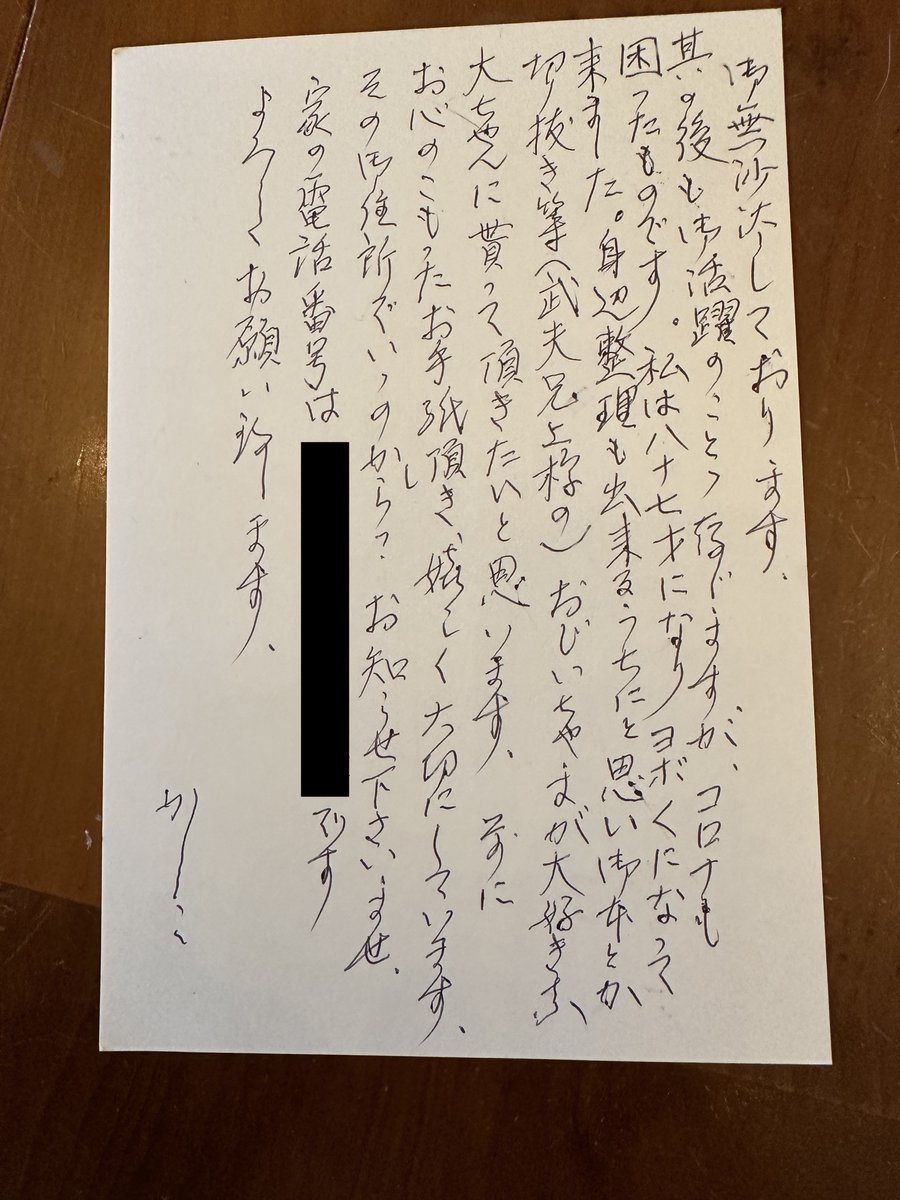 御無沙汰しております、
其の後も御活躍のことゝ存じますが、コロナも
困ったものです。私は八十七才になりヨボくになって
来ました。身辺整理も出来るうちにと思い御本とか
切り抜き等(武夫兄上様の)おじいちゃまが大好きな
大ちゃんに貰って頂きたいと思います、前に
お心のこもったお手紙頂き、嬉しく大切にしています、
その御住所でいゝのかしら?お知らせ下さいませ、
家の電話番号は
です
よろしくお願い致します、
かしこ